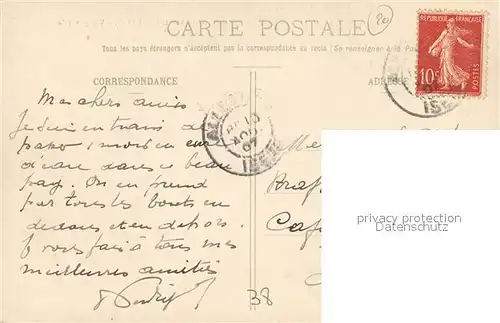 CARTE POSTALE
20
Tous les pays étrangers n'acceptent pas la correspondance au recto (Se renseigner à la Po
CORRESPONDANCE
ADRE
RÉPUBLIQUE FRANÇAISE
10c
POSTES
ISE
ALLEV
AOU
07
ISE
Mes chers amis
Je suis en train de
passer 1 mois en cure
d'eau dans ce beau
pays. On en prend
par tous les bouts en
dedans et en dehors.
Je vous fais à tous mes
meilleures amitiés
Me
Caf
38
privacy protection
Datenschutz